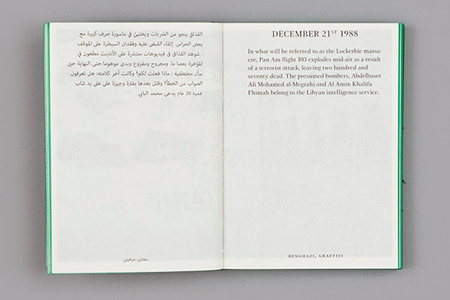 القذافي ينجو من الضربات ويختبئ في ماسورة صرف كبيرة مع
بعض الحراس. إلقاء القبض عليه وفقدان السيطرة على الموقف
. شوهد القذافي في فيديوهات منتشرة على الأنترنت مطعون في
المؤخرة بعصا ما، ومجروح ومفزوع ويدي موهوما حتى النهاية حين
سأل مختطفيه : ماذا فعلت لكم؟ وكانت آخر كلامته: هل تعرفون
الصواب من الخطأ؟ وقتل بعدها بفترة وجيزة على على يد شاب
عمره 20 عام يدعى محمد
بنغازي، جرافيتي
DECEMBER 21ST 1988
In what will be referred to as the Lockerbie massa-
cre, Pan Am flight 103 explodes mid-air as a result
of a terrorist attack, leaving two hundred and
seventy dead. The presumed bombers, Abdelbaset
Ali Mohamed al-Megrahi and Al Amin Khalifa
Fhimalt belong to the Libyan intelligence service.
BENGHAZI, GRAFFITI